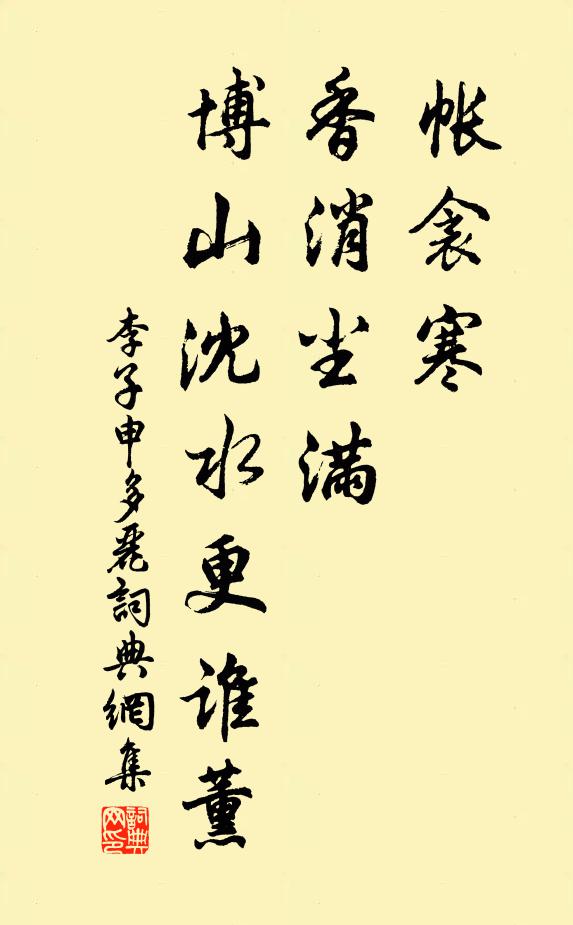 帐衾寒
香消尘满
博山沈水更谁薰
李子申多丽詞典網集
詞典网印